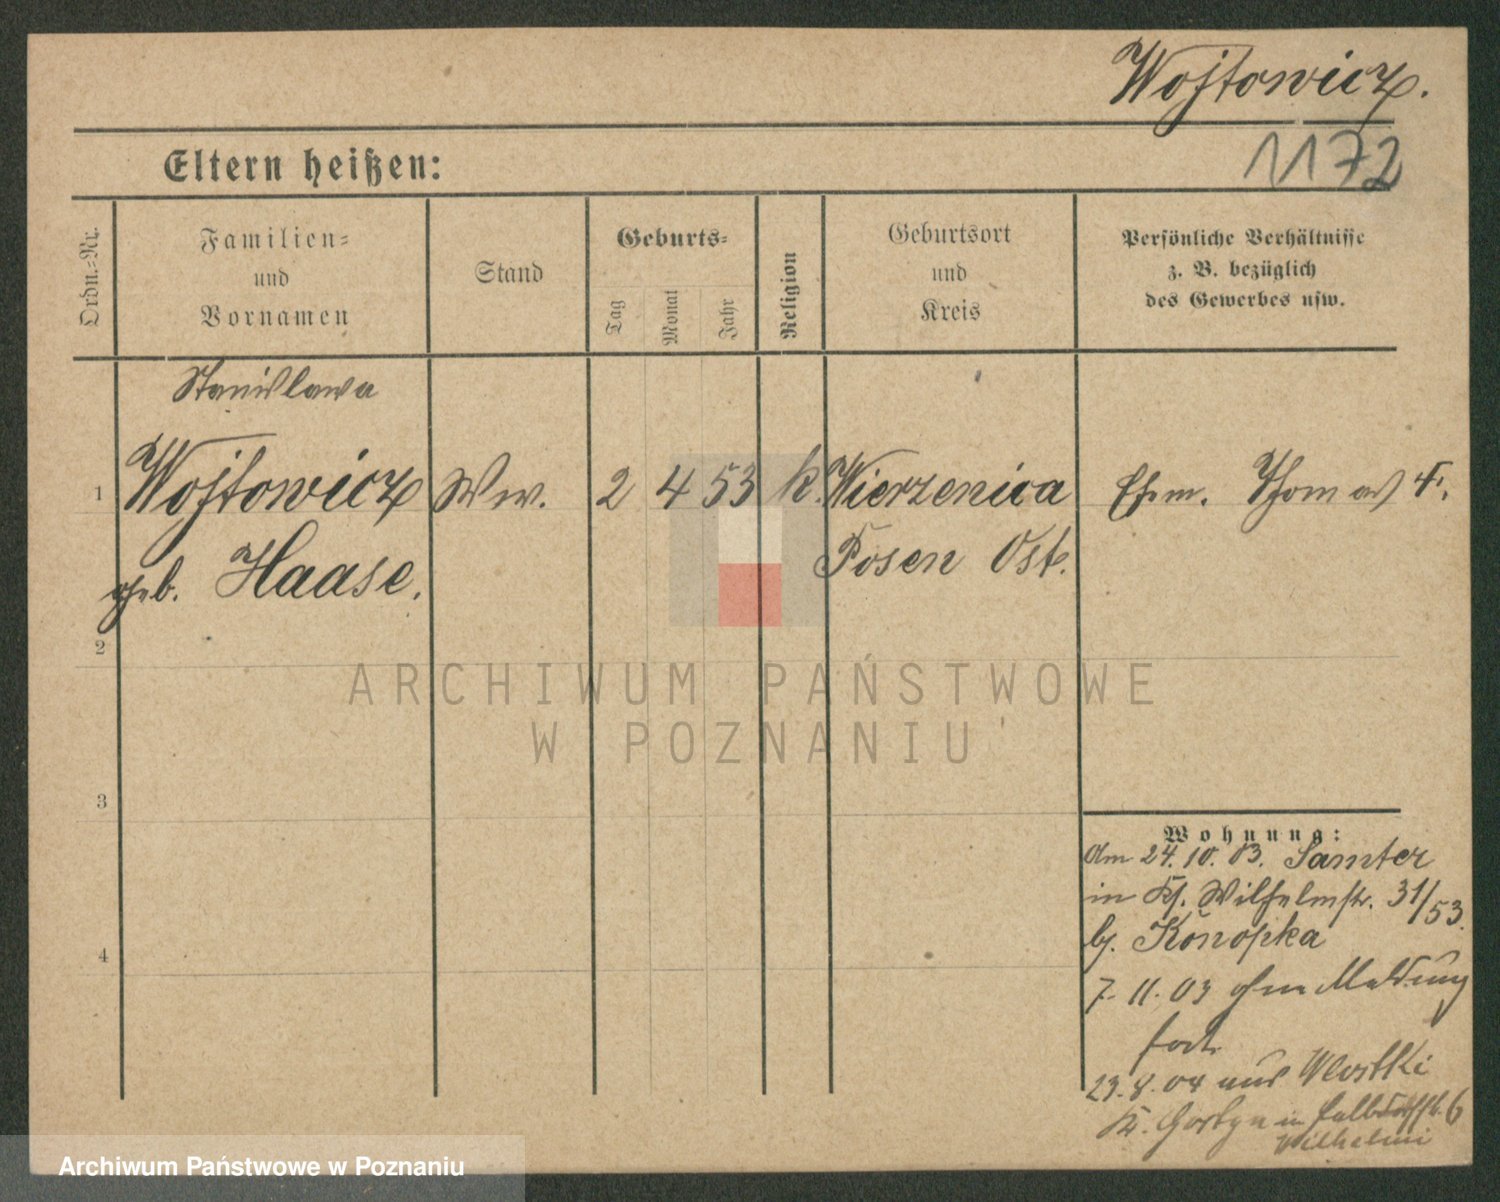 Wojtowicz.
1172
Eltern heißen:
Ordn.-Nr.
Familien-
und
Vornamen
Stand
Geburts-
Tag
Monat
Jahr
Religion
Geburtsort
und
Kreis
Persönliche Verhältnisse
z. B. bezüglich
des Gewerbes usw.
Stanislawa
1 Wojtowicz Ww. 2 4 53 k. Wierzenica Ehm. Thomas †.
geb. Haase. Posen Ost.
2
3
4
ARCHIWUM PAŃSTWOWE
W POZNANIU
Wohnung:
am 24.10.03. Samter
in Wilhelmstr. 31/53.
bj. Konopka
7.11.03 ohne Meldung
fort
23.8.04 aus Wlostki
Kr. Gostyn in 6
Wilhelmi
Archiwum Państwowe w Poznaniu